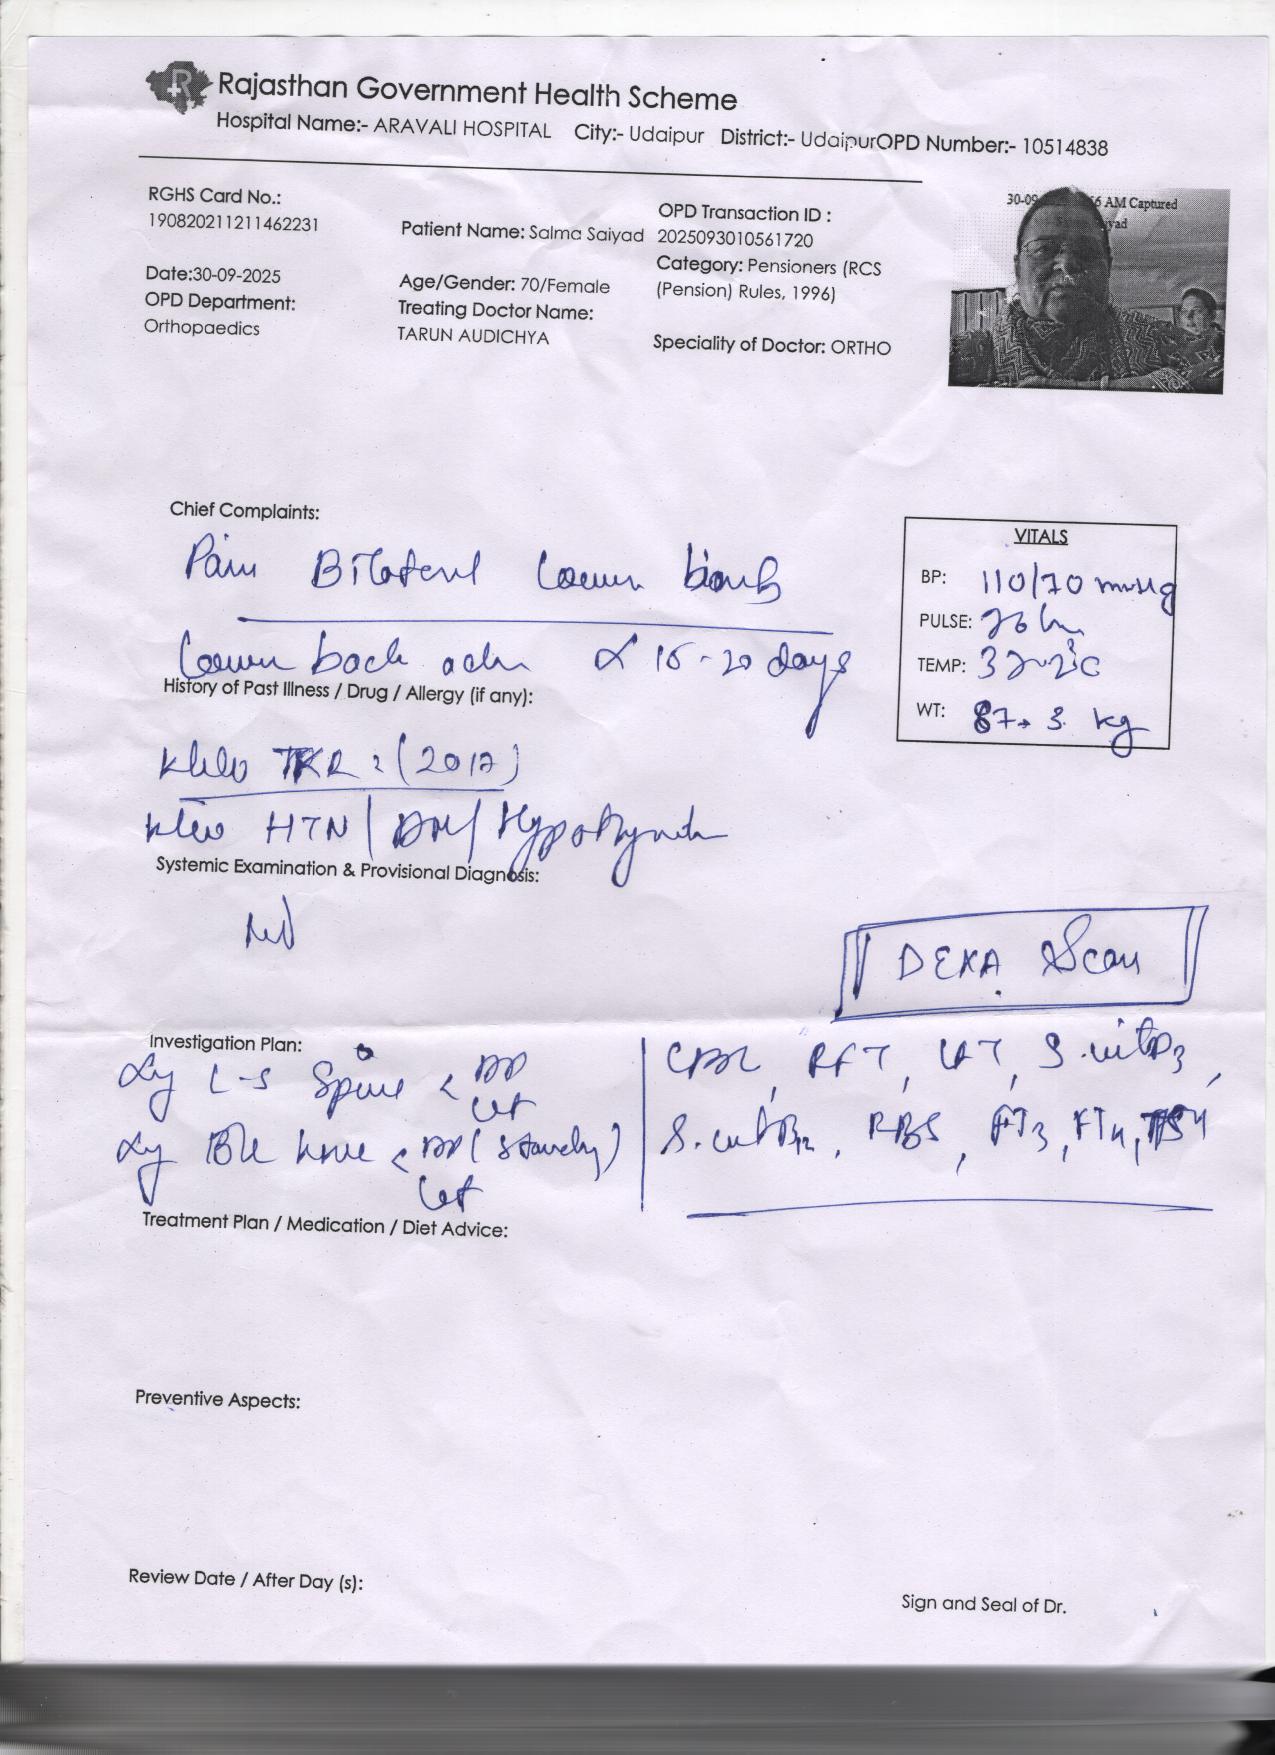 Rajasthan Government Health Scheme
Hospital Name:- ARAVALI HOSPITAL City:- Udaipur District:- UdaipurOPD Number:- 10514838
RGHS Card No.:
190820211211462231
Patient Name: Salma Saiyad
OPD Transaction ID :
2025093010561720
Date:30-09-2025
Age/Gender: 70/Female
Category: Pensioners (RCS
(Pension) Rules, 1996)
OPD Department:
Orthopaedics
Treating Doctor Name:
TARUN AUDICHYA
Speciality of Doctor: ORTHO
30-09 6 AM Captured
Chief Complaints:
Pain Bilateral Lower limb
Lower back ache 15-20 days
VITALS
BP: 110/70 mmHg
PULSE:
TEMP:
WT: 87.3 kg
History of Past Illness / Drug / Allergy (if any):
TKR (2017)
HTN / DM / Hypothyroid
Systemic Examination & Provisional Diagnosis:
DEXA Scan
Investigation Plan:
L-S Spine < AP
Lat
knee < AP (standing)
Lat
CBC, RFT, LFT, S.vitD3,
S.vitB12, RBS, FT3, FT4, TSH
Treatment Plan / Medication / Diet Advice:
Preventive Aspects:
Review Date / After Day (s):
Sign and Seal of Dr.